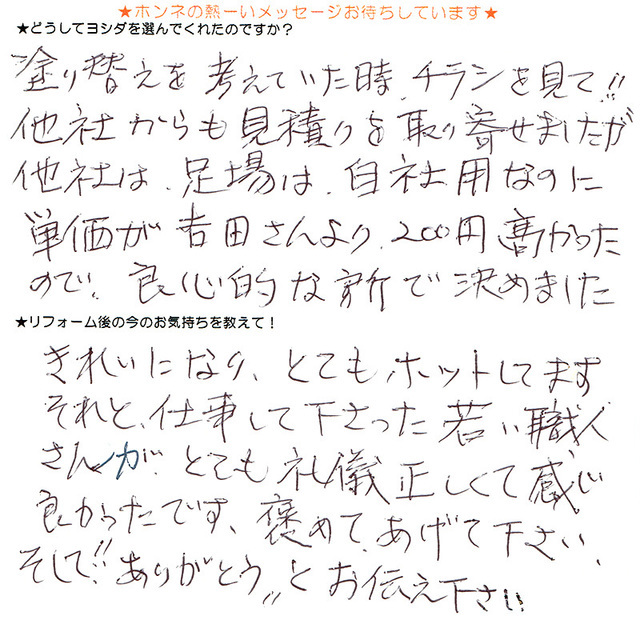 ★ホンネの熱ーいメッセージお待ちしています★
★どうしてヨシダを選んでくれたのですか？
塗り替えを考えていた時、チラシを見て!!
他社からも見積りを取り寄せましたが
他社は、足場は、自社用なのに
単価が吉田さんより、200円高かった
ので、良心的な所で決めました
★リフォーム後の今のお気持ちを教えて！
きれいになり、とてもホットしてます
それと、仕事して下さった若い職人
さんが、とても礼儀正しくて感じ
良かったです、褒めてあげて下さい、
そして!!ありがとう〃とお伝え下さい